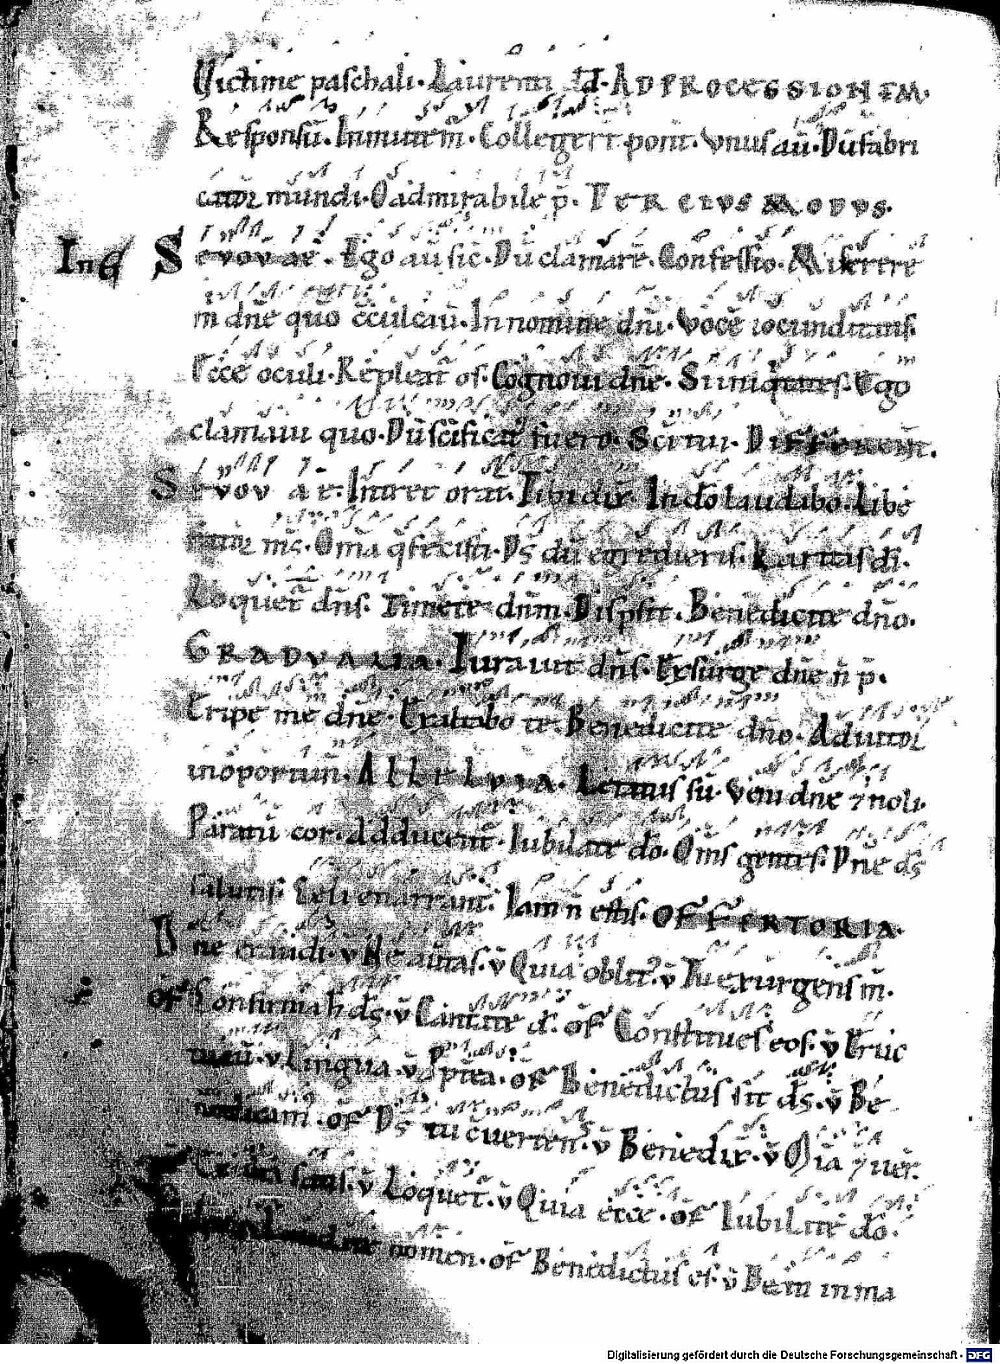 Victime paschali. Laurenti d̄d. AD PROCESSIONEM.
Responsū. Inmutem̄. Collegerr̄. pont̄. Vnus aū. Dū fabri
cator̄ mundi. O admirabile p̄. TERCIVS MODVS.
Inq̄ S evovae. Ego aū sic̄. Dū clamarē. Confessio. Miserere
m̄ dn̄e quō c̄culcaū. In nomine dn̄i. Vocē iocunditatis.
Ecce oculi. Repleat̄ os. Cognoui dn̄e. Si iniquitates. Ego
clamaui quō. Dū scīficat̄ fuero. Scitui. DIFFERENT̄.
S evovae. Intret orat̄. Tibi dix̄. In dō laudabo. Libe
rator̄ m̄s. Om̄a q̄ fecisti. D̄s dū egredieris. Karitas d̄i.
Loquet̄ dn̄s. Timete dn̄m. Dispsit. Benedicite dn̄o.
GRADVALIA. Iurauit dn̄s. Exsurge dn̄e n̄ p̄.
Eripe me dn̄e. Exaltabo te. Benedicite dn̄o. Adiutor
in oportun̄. ALLELVIA. Letatus sū. Veni dn̄e ⁊ noli.
Paratū cor. Adducent̄. Iubilate dō. Om̄s gentes. Dn̄e d̄s
salutis. Celi enarrant. Iam n̄ estis. OFFERTORIA.
D ne exaudi. v̄ Ne auertas. v̄ Quia oblit̄. v̄ Tu exurgens m̄.
OF Confirma h̄ d̄s. v̄ Cantate d̄. OF Constitues eos. v̄ Eruc
tauit. v̄ Lingua v̄ Sp̄ta. OF Benedictus sit d̄s. v̄ Be
nedicam. OF D̄s tu c̄uerten̄. v̄ Benedix̄. v̄ Mīa ⁊ uer̄.
v̄ Loquet̄. v̄ Quia ecce. OF Iubilate dō.
nomen. OF Benedictus es. v̄ Beati in ma
Digitalisierung gefördert durch die Deutsche Forschungsgemeinschaft - DFG